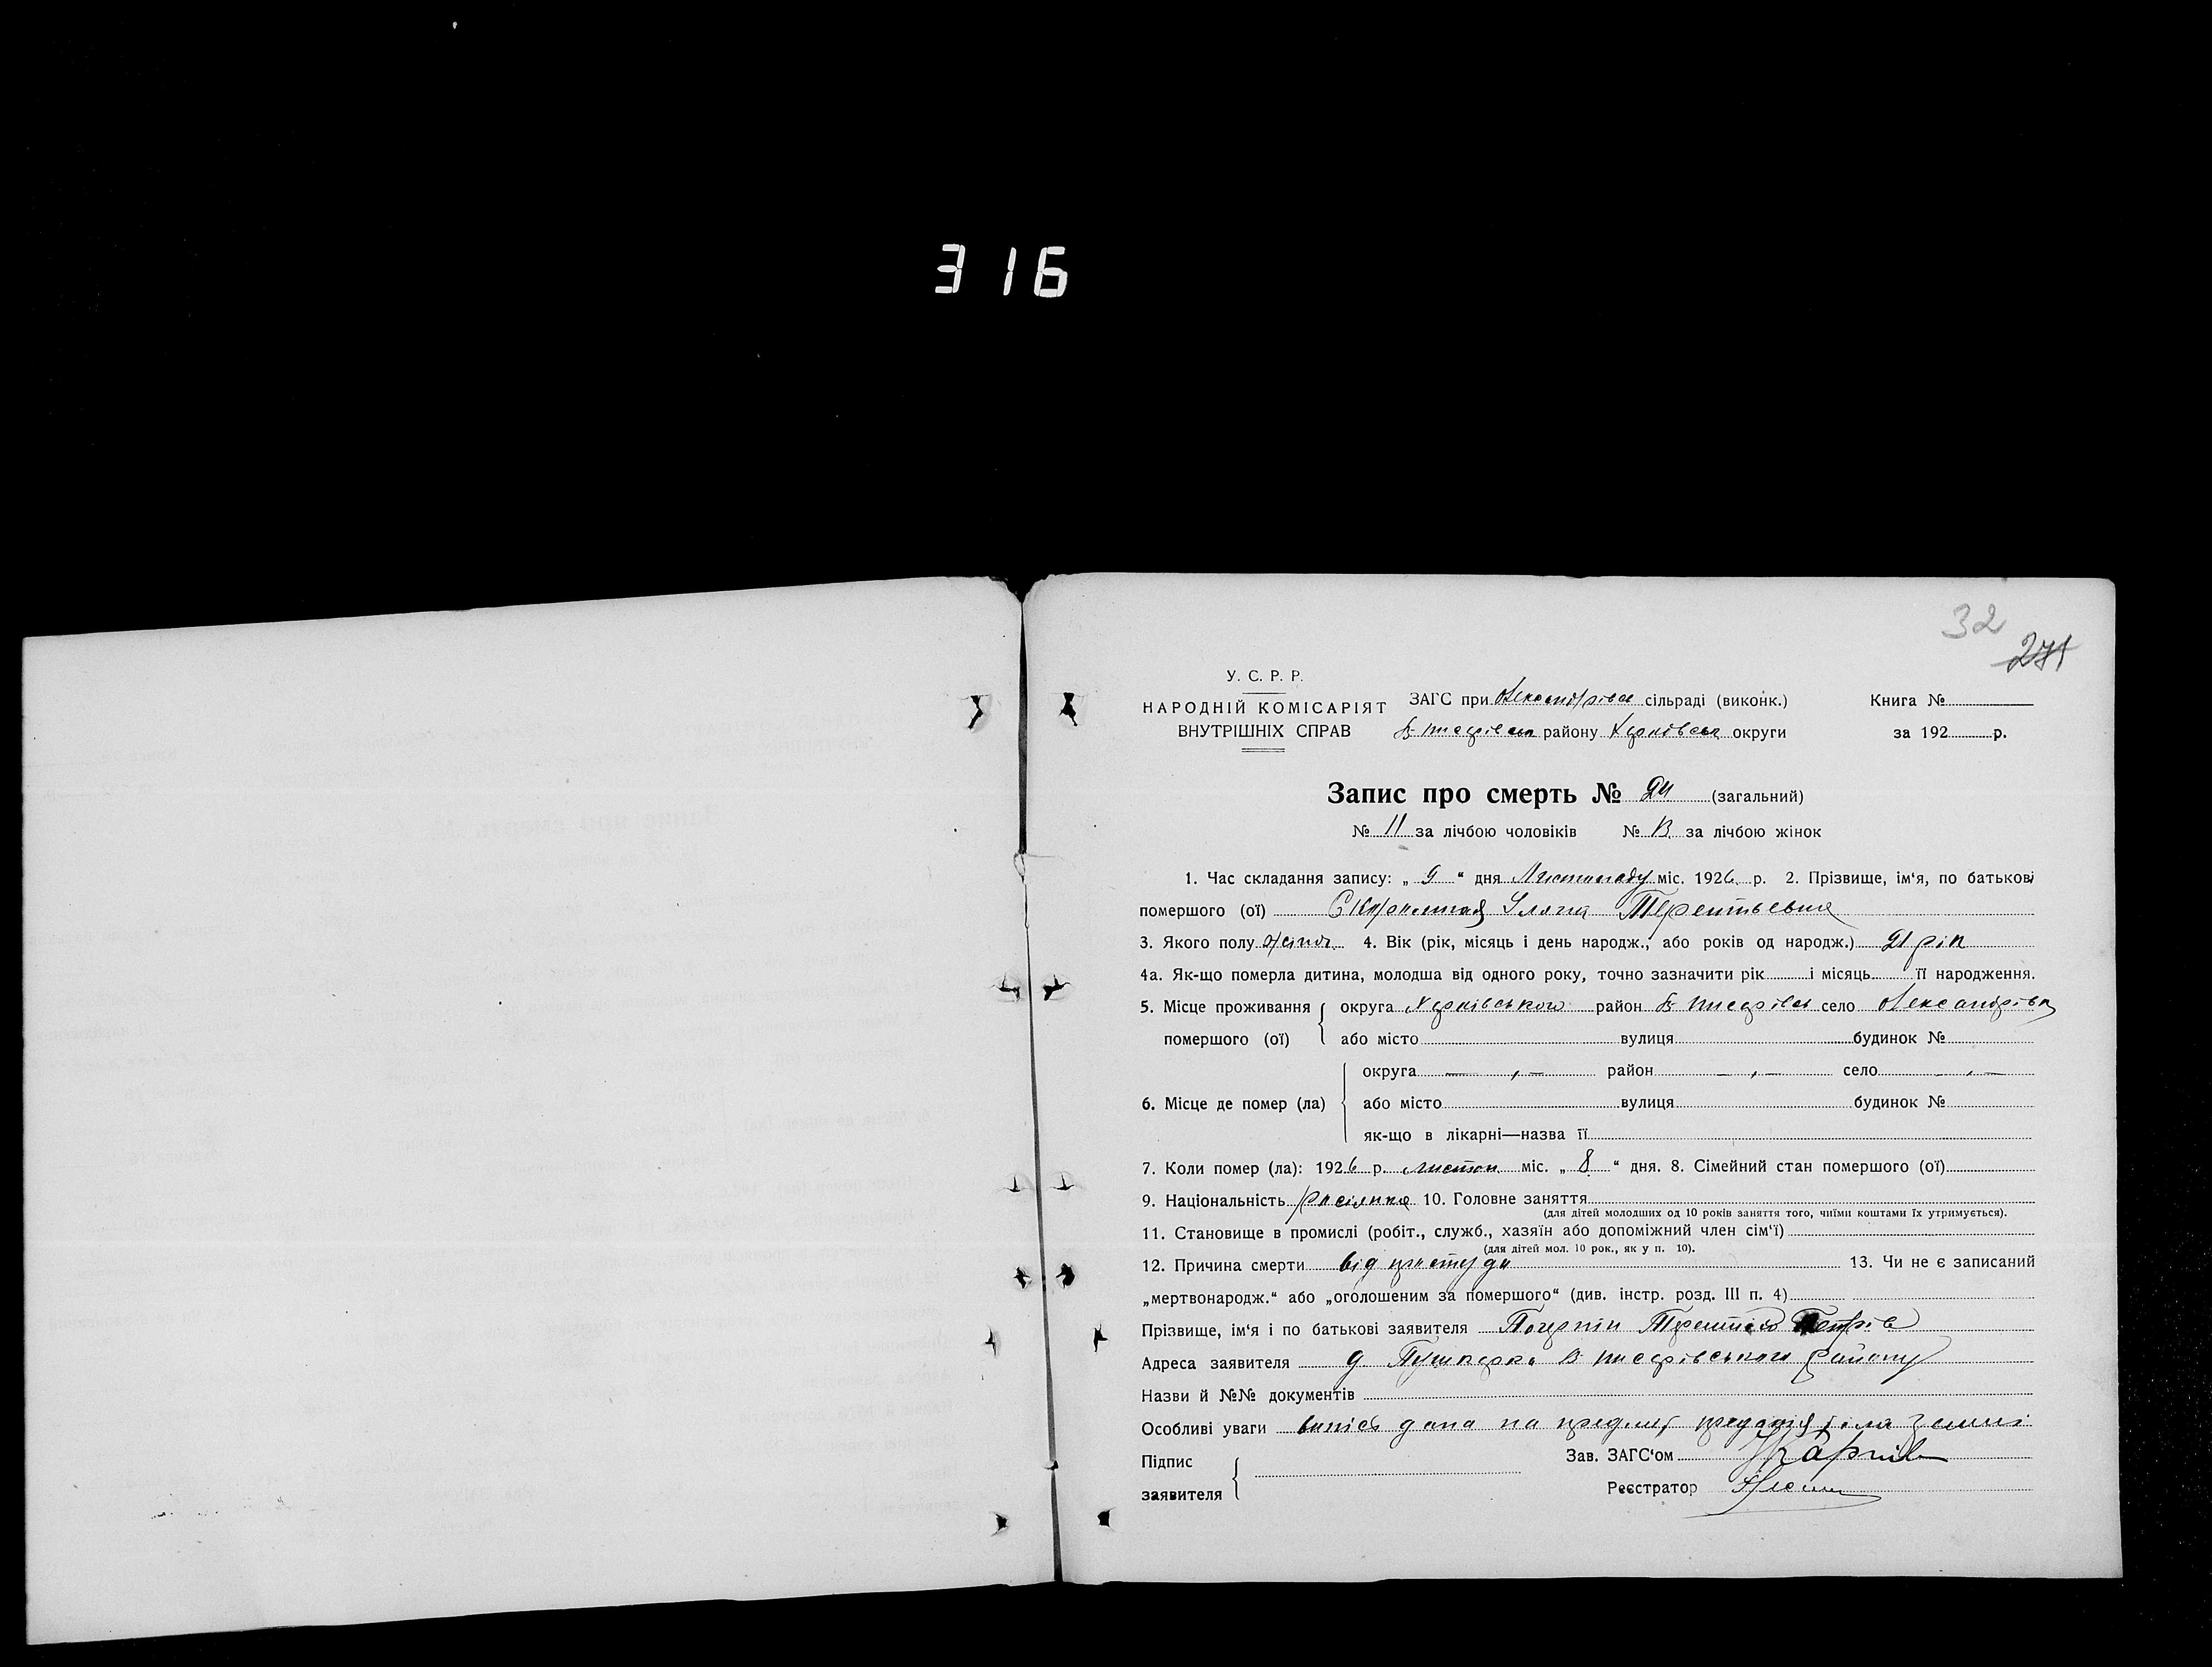 316
32
271
У. С. Р. Р.
НАРОДНІЙ КОМІСАРІЯТ
ВНУТРІШНІХ СПРАВ
ЗАГС при сільраді (виконк.)
району округи
Книга №
за 192 р.
Запис про смерть № 24 (загальний)
№ 11 за лічбою чоловіків № 13 за лічбою жінок
1. Час складання запису: „ 9 “ дня Листопаду міс. 1926 р. 2. Прізвище, ім‘я, по батькові
помершого (ої) Терентьевна
3. Якого полу 4. Вік (рік, місяць і день народж., або років од народж.) 21 рік
4а. Як-що померла дитина, молодша від одного року, точно зазначити рік і місяць її народження.
5. Місце проживання округа Харківського район село Олександрівка
помершого (ої) або місто вулиця будинок №
округа — „ — район — „ — село — „ —
6. Місце де помер (ла) або місто вулиця будинок №
як-що в лікарні—назва її
7. Коли помер (ла): 1926 р. листоп міс. „ 8 “ дня. 8. Сімейний стан помершого (ої)
9. Національність 10. Головне заняття
(для дітей молодших од 10 років заняття того, чиїми коштами їх утримується).
11. Становище в промислі (робіт., служб., хазяїн або допоміжний член сім‘ї)
(для дітей мол. 10 рок., як у п. 10).
12. Причина смерти від простуди 13. Чи не є записаний
„мертвонародж.“ або „оголошеним за помершого“ (див. інстр. розд. III п. 4)
Прізвище, ім‘я і по батькові заявителя Петрів
Адреса заявителя району
Назви й №№ документів
Особливі уваги дана на предмет землі
Підпис
заявителя
Зав. ЗАГС‘ом
Реєстратор